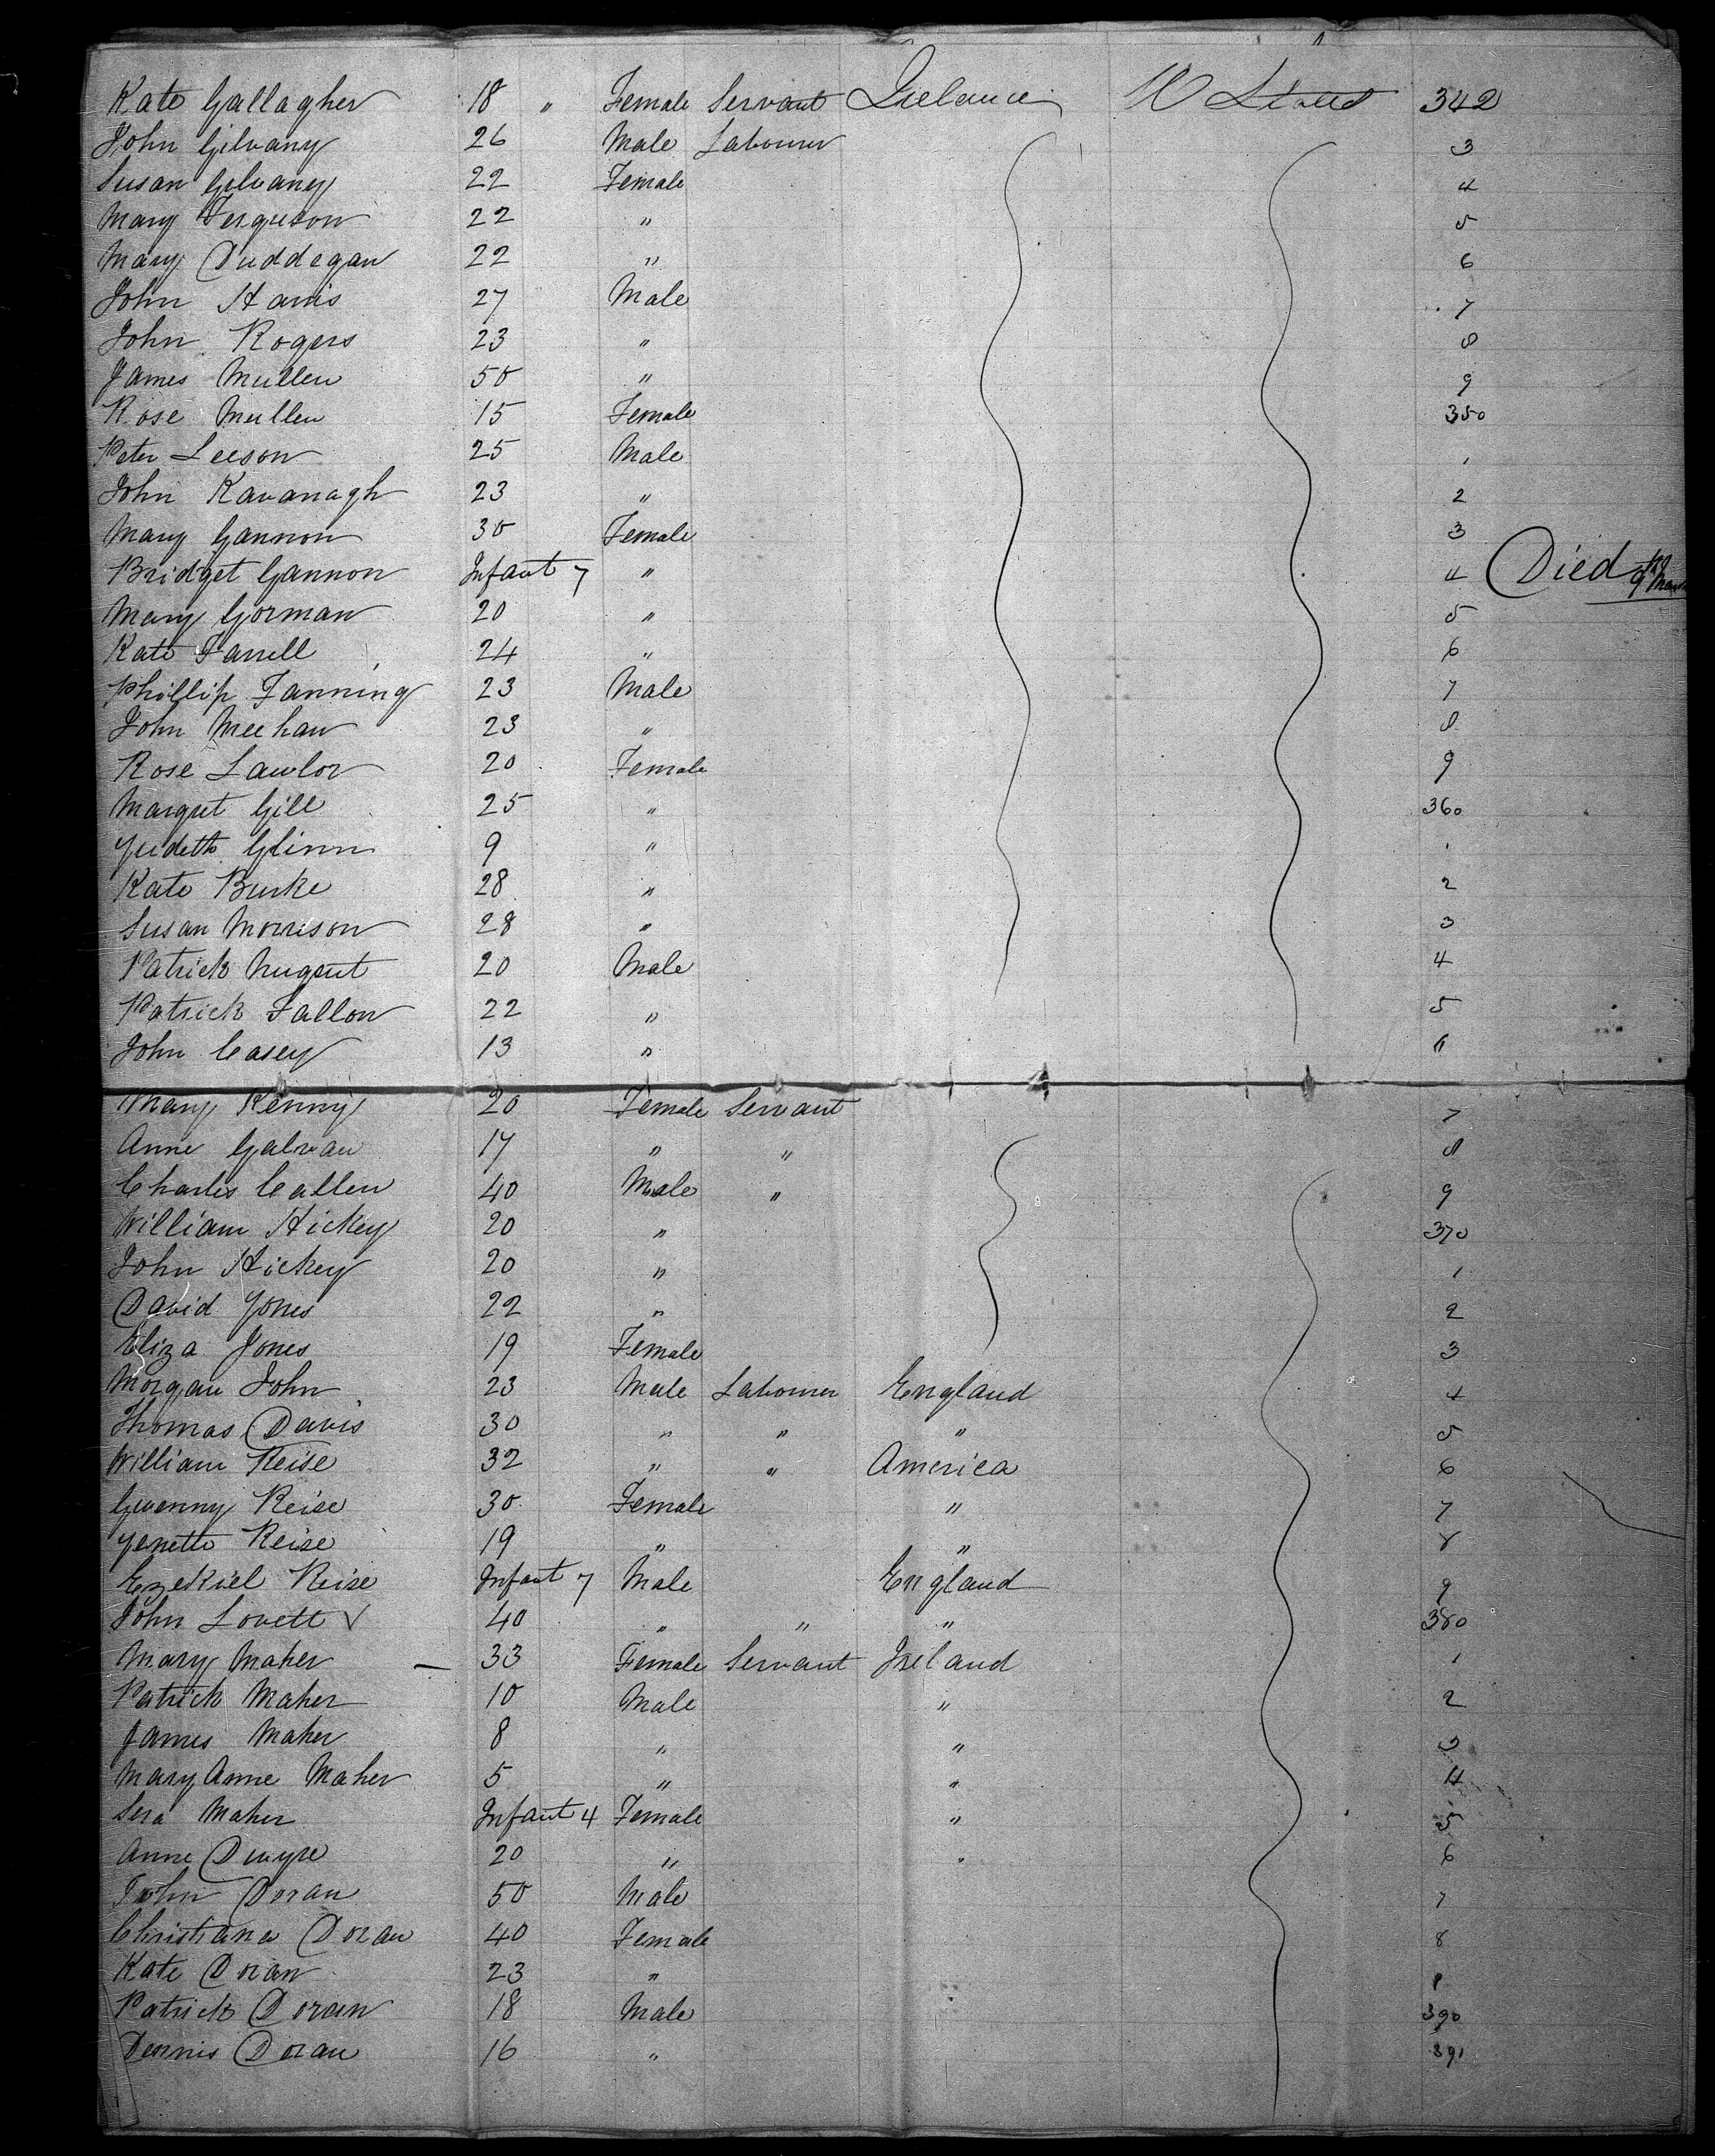 Kate Gallagher 18 " Female Servant Ireland U States 342
John Gilvany 26 Male Labourer 3
Susan Gilvany 22 Female 4
Mary Ferguson 22 " 5
Mary Duddegan 22 " 6
John Harris 27 Male 7
John Rogers 23 " 8
James Mullen 50 " 9
Rose Mullen 15 Female 350
Peter Leeson 25 Male 1
John Kavanagh 23 " 2
Mary Gannon 30 Female 3
Bridget Gannon Infant 7 " 4 Died 9th March
Mary Gorman 20 " 5
Kate Farrell 24 " 6
Phillip Fanning 23 Male 7
John Meehan 23 " 8
Rose Lawlor 20 Female 9
Margret Gill 25 " 360
Judeth Glinn 9 " 1
Kate Burke 28 " 2
Susan Morrison 28 " 3
Patrick Nugent 20 Male 4
Patrick Fallon 22 " 5
John Casey 13 " 6
Mary Kenny 20 Female Servant 7
Anne Galvan 17 " " 8
Charles Callen 40 Male " 9
William Hickey 20 " 370
John Hickey 20 " 1
David Jones 22 " 2
Eliza Jones 19 Female 3
Morgan John 23 Male Labourer England 4
Thomas Davis 30 " " " 5
William Reise 32 " " America 6
Gwenny Reise 30 Female " 7
Jenette Reise 19 " " 8
Ezekiel Reise Infant 7 Male England 9
John Lovett 40 " " " 380
Mary Maher 33 Female Servant Ireland 1
Patrick Maher 10 Male " 2
James Maher 8 " " 3
Mary Anne Maher 5 " " 4
Sera Maher Infant 4 Female " 5
Anne Dwyre 20 " " 6
John Doran 50 Male 7
Christiana Doran 40 Female 8
Kate Doran 23 " 9
Patrick Doran 18 Male 390
Dennis Doran 16 " 391